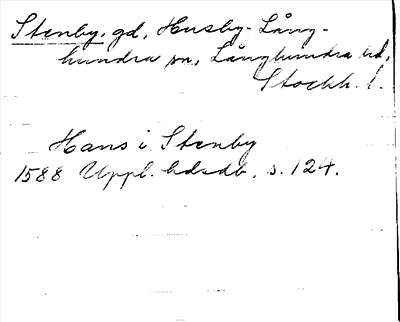 Stenby, gd, Husby-Lång-
hundra sn, Långhundra hd,
Stockh. l.
Hans i Stenby
1588 Uppl. hdsdb, s. 124.